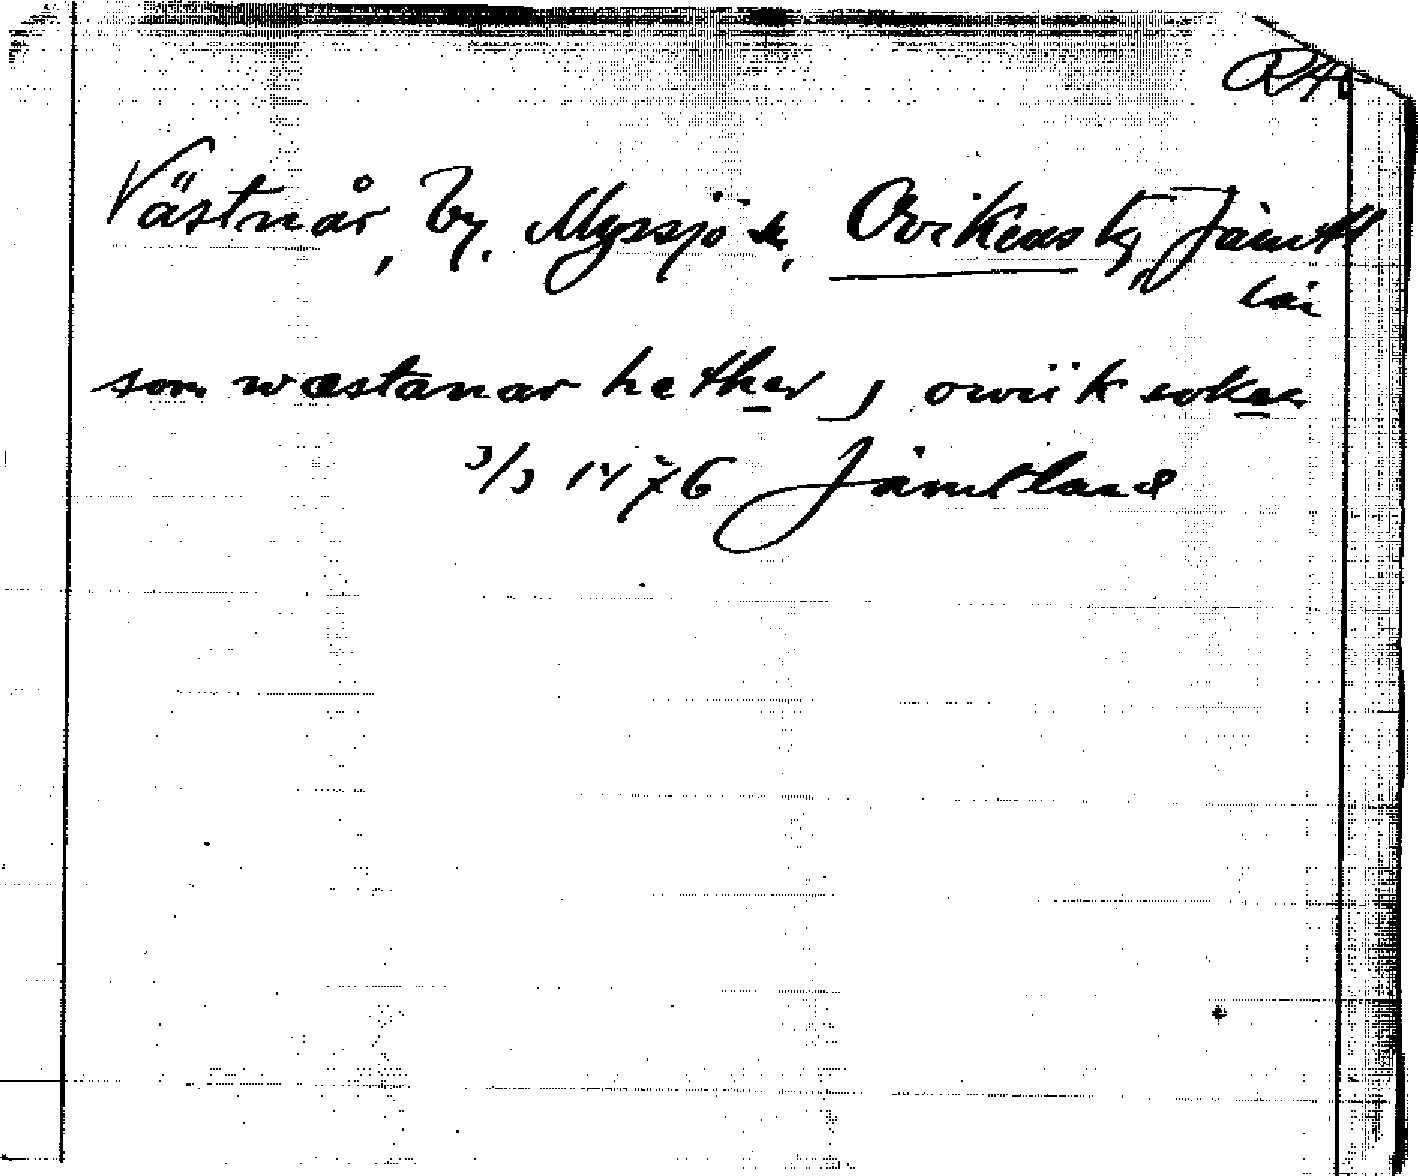 Västnår, by, Myssjö sn, Ovikens tg, Jämtl
län
som wæstanar hether j owiik soken
3/3 1476 Jämtland